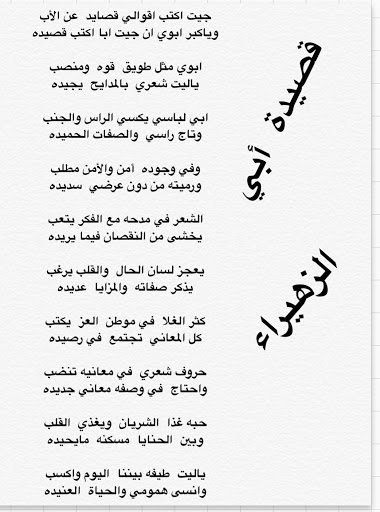 قصيدة أبي
الزهيراء
جيت اكتب اقوالي قصايد عن الأب
وياكبر ابوي ان جيت ابا اكتب قصيده
ابوي مثل طويق قوه ومنصب
ياليت شعري بالمدايح يجيده
ابي لباسي يكسي الراس والجنب
وتاج راسي والصفات الحميده
وفي وجوده أمن والأمن مطلب
ورميته من دون عرضي سديده
الشعر في مدحه مع الفكر يتعب
يخشى من النقصان فيما يريده
يعجز لسان الحال والقلب يرغب
يذكر صفاته والمزايا عديده
كثر الغلا في موطن العز يكتب
كل المعاني تجتمع في رصيده
حروف شعري في معانيه تنضب
واحتاج في وصفه معاني جديده
حبه غذا الشريان ويغذي القلب
وبين الحنايا مسكنه مايحيده
ياليت طيفه بيننا اليوم واكسب
وانسى همومي والحياة العنيده